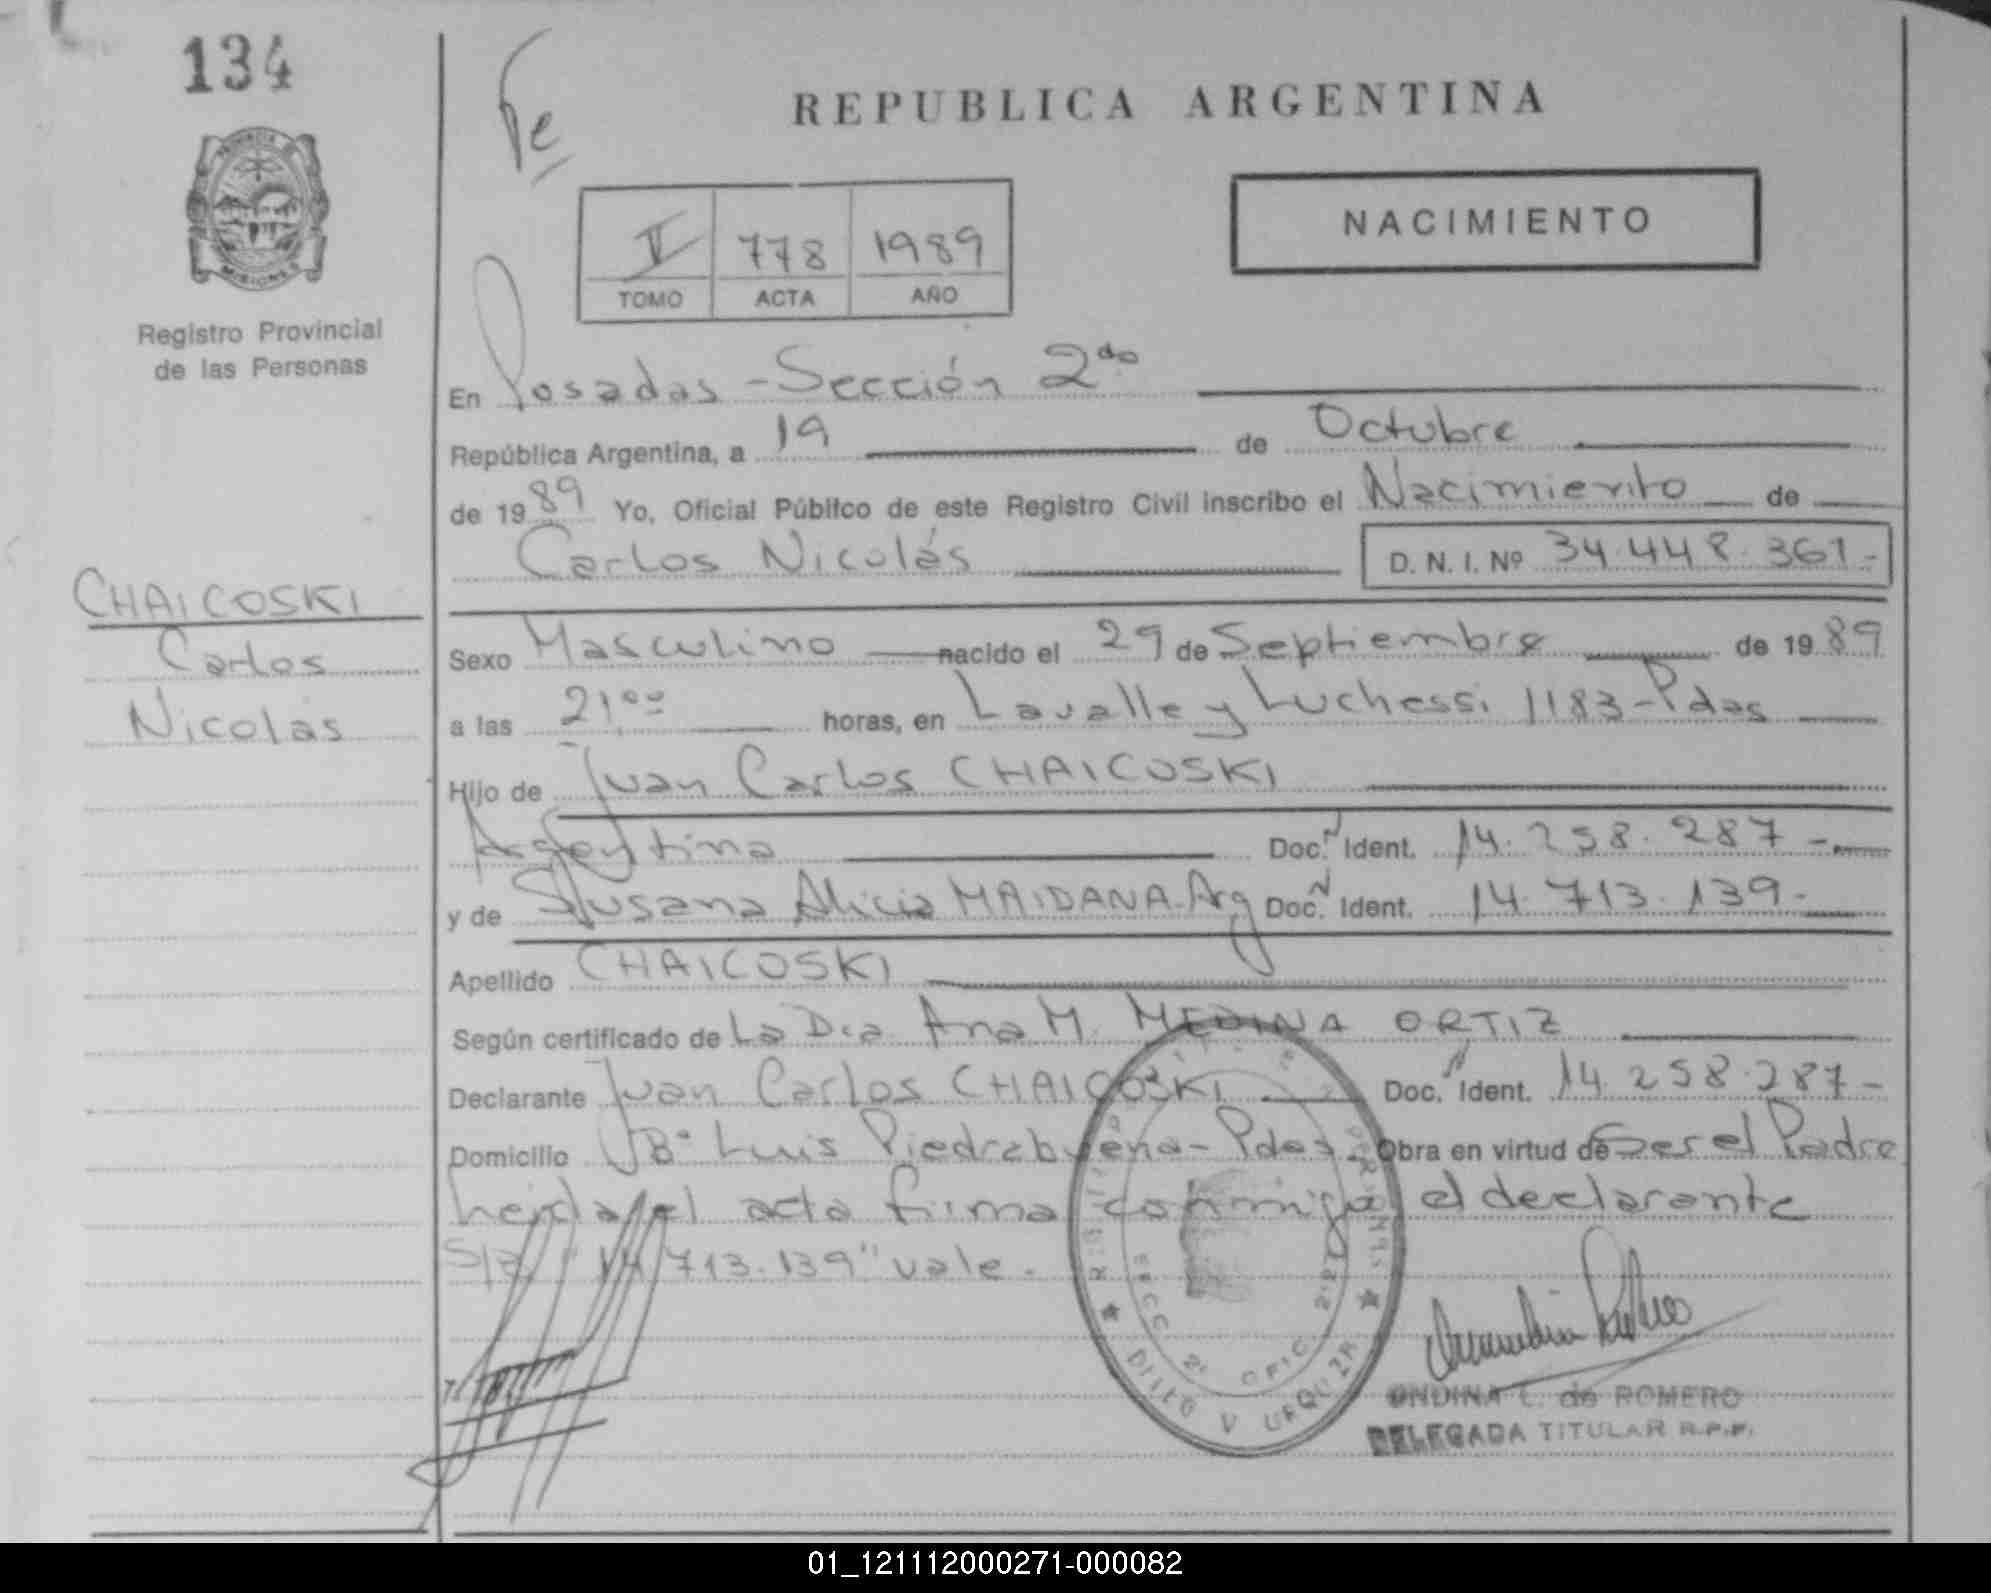 134
REPUBLICA ARGENTINA
PROVINCIA
MISIONES
Registro Provincial
de las Personas
NACIMIENTO
V 778 1989
TOMO ACTA AÑO
En Posadas - Sección 2do
República Argentina, a 19 de Octubre
de 1989 Yo, Oficial Público de este Registro Civil inscribo el Nacimiento de
Carlos Nicolás D. N. I. Nº 34.448.361-
CHAICOSKI
Carlos
Nicolás
Sexo Masculino nacido el 29 de Septiembre de 1989
a las 21oo horas, en Lavalle y Luchessi 1183-Pdas
Hijo de Juan Carlos CHAICOSKI
Argentina Doc. Ident. 14.258.287-
y de Susana Alicia MAIDANA-Arg Doc. Ident. 14.713.139-
Apellido CHAICOSKI
Según certificado de La Dra. Ana M. MEDINA ORTIZ
Declarante Juan Carlos CHAICOSKI Doc. Ident. 14.258.287-
Domicilio Bº Luis Piedrabuena-Pdas. Obra en virtud de Ser el Padre
leída el acta firma conmigo el declarante
S/r "14.713.139" vale.
SECC. 2º OFIC.
URQUIZA
ONDINA C. de ROMERO
DELEGADA TITULAR R.P.P.
01_121112000271-000082